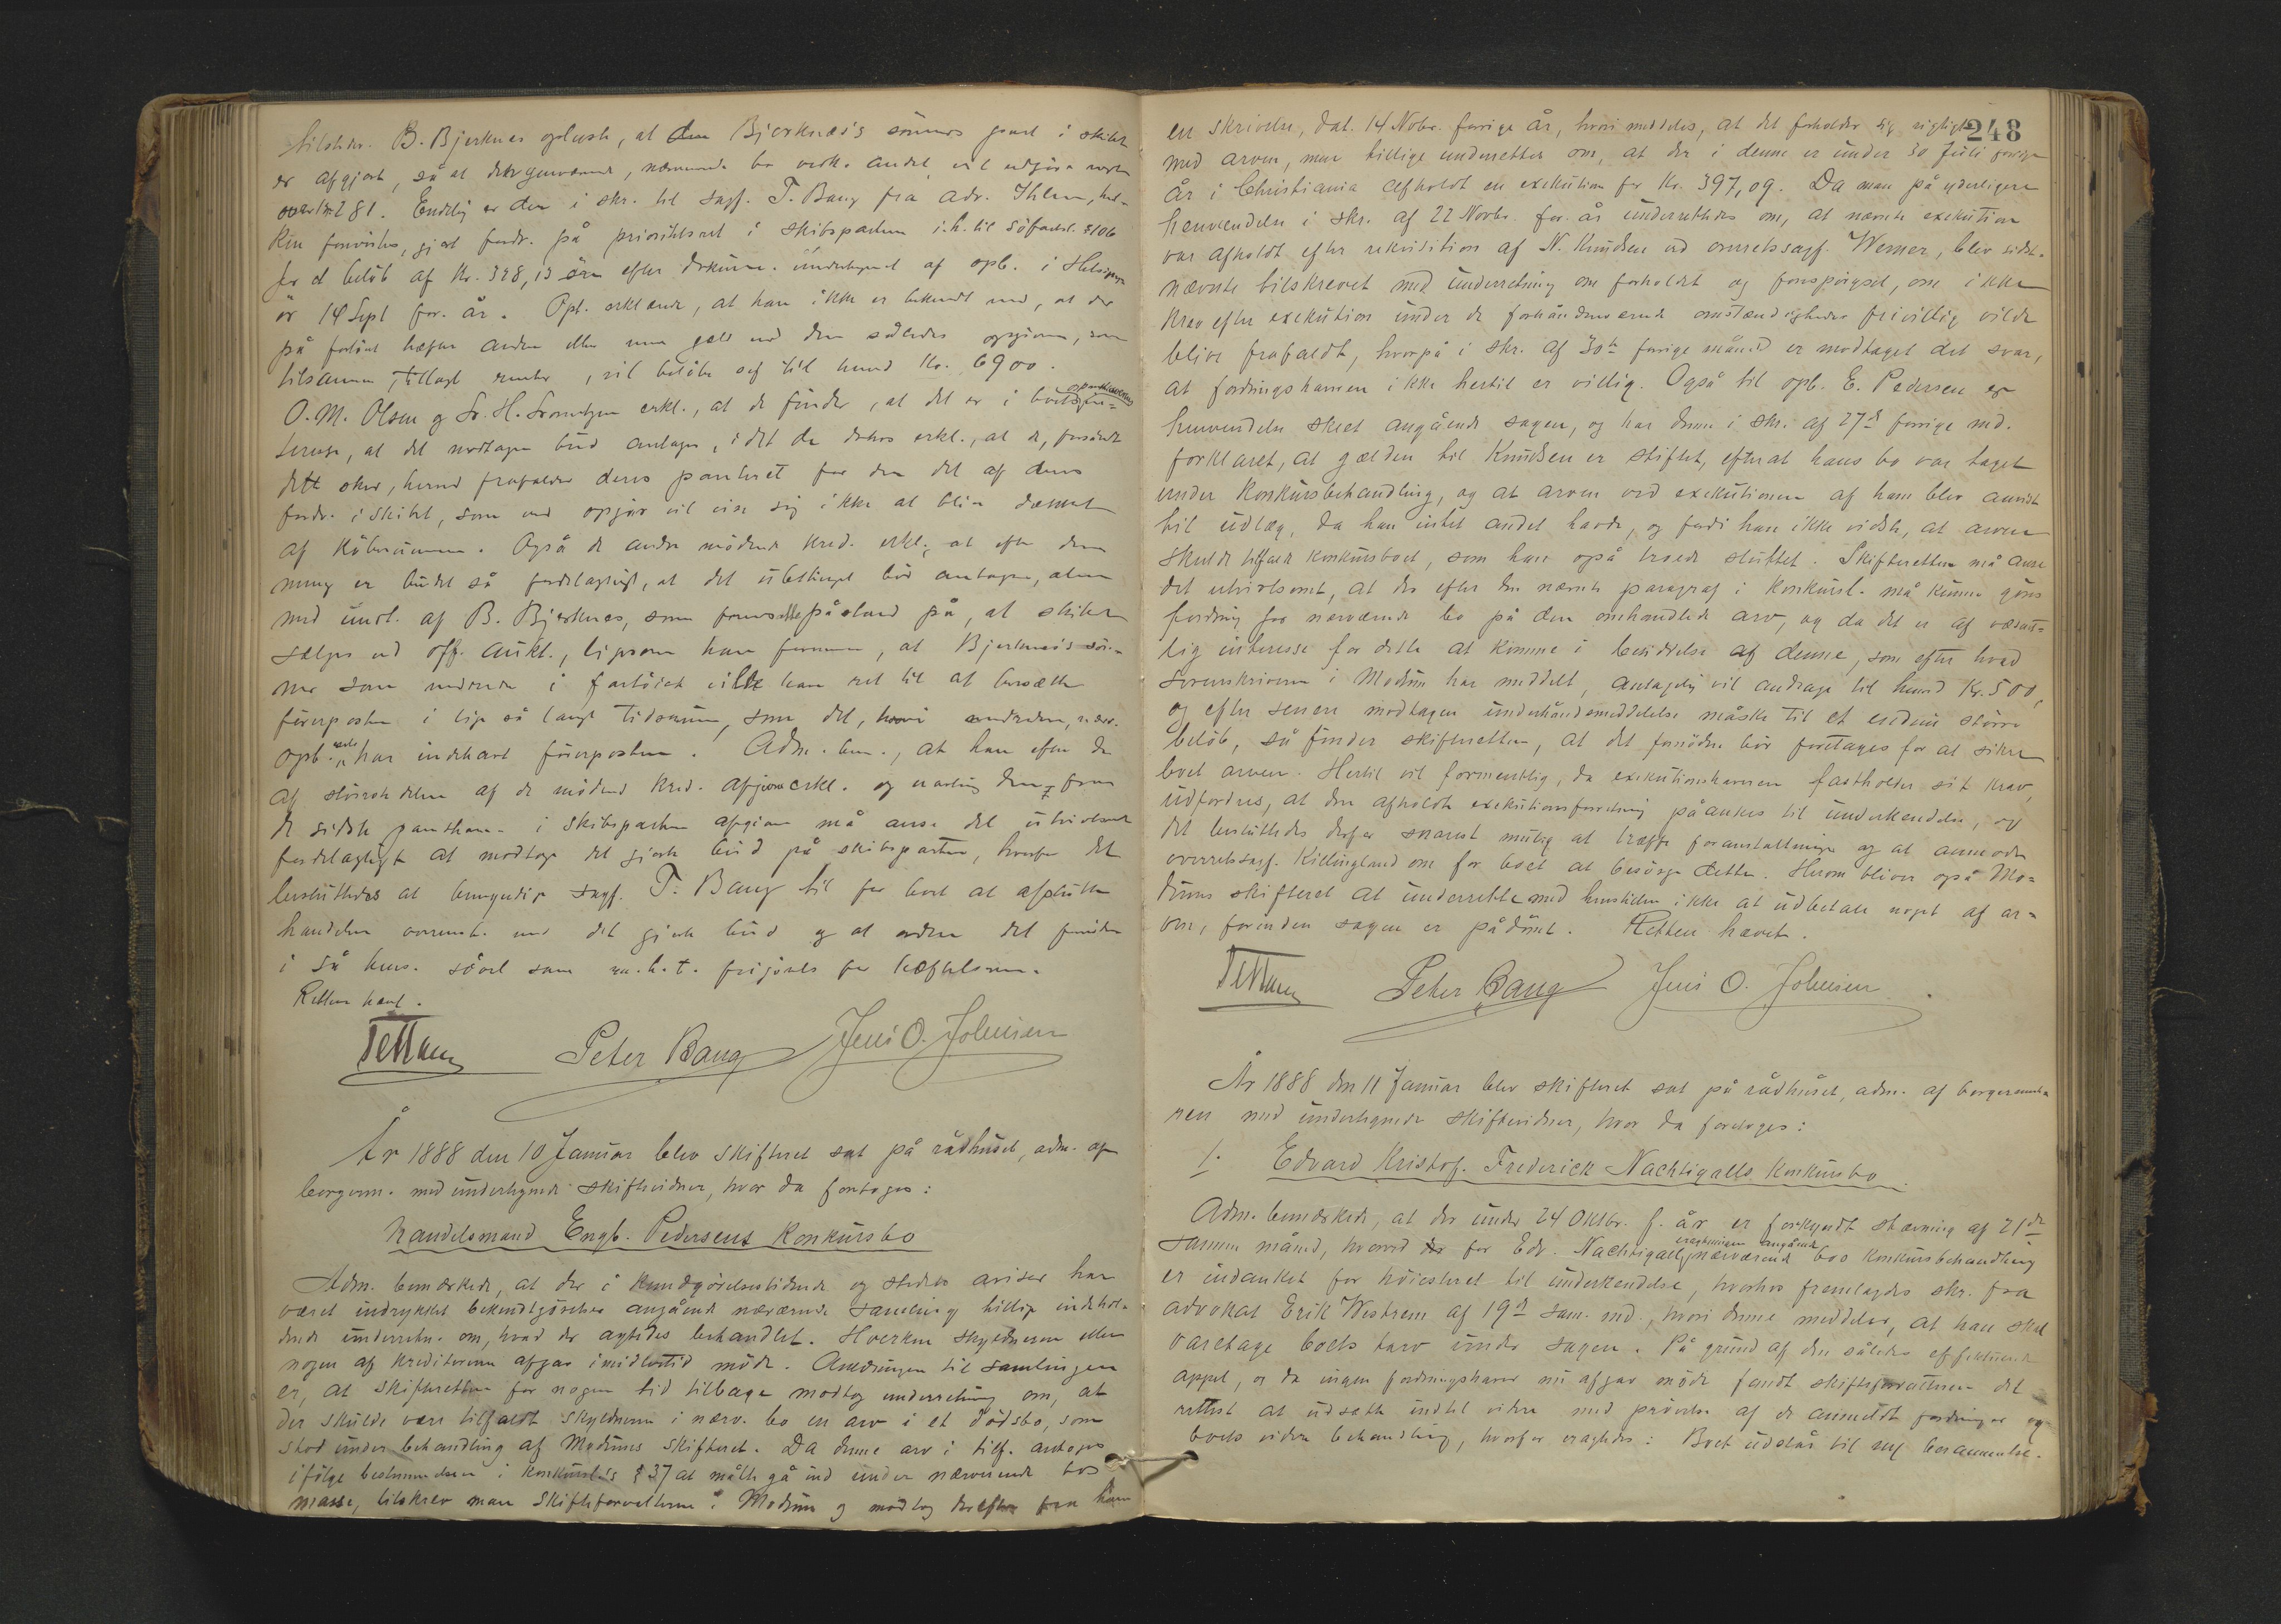 tilstede. B. Bjerknes oplyste, at den Bjerknes's sönners gjæld i skibet
er afgjort, så at nærværende bo vedk. andel vil udgjöre
281. Endelig er der i skr. til sagf. T. Bang fra adv. Ihlen, hvil-
ken forevistes, gjort fordr. på prioritetsret i skibsparten i.h. til söfartsl. § 106
for et belöb af Kr. 328,13 öre efter dokum. undertegnet af opb. i Helsingör
14 Sept for. år. Opb. erklærede, at han ikke er bekendt med, at der
på fartöiet hæfter anden eller mere gæld end den således opgivne, som
tilsammen, tillagt renter, vil belöbe sig til henved Kr. 6900.
O. M. Olsen og erkl., at de finder, at det er i boets og panthavernes in-
teresse, at det modtagne bud antages, idet de derhos erkl., at de, forsåvidt
dette sker, herved frafalder deres panteret for den del af deres
fordr. i skibet, som ved opgjör vil vise sig ikke at blive dækket
af köbesummen. Også de andre mödende kred. erkl., at efter deres
mening er budet så fordelagtigt, at det ubetinget bör antages, alene
med undt. af B. Bjerknes, som fremsatte påstand på, at skibet
sælges ved off. aukt., ligesom han formener, at Bjerknes's sön-
ner som medredere i fartöiet vilde have ret til at besætte
förerposten i lige så langt tidsrum, som det, hvori medrederen, nærv.
opb. selv har indehavt förerposten. Adm. bem., at han efter den
af störstedelen af de mödende kred. afgivne erkl. og navnlig den fra
de sidste panthav. i skibsparten afgivne må anse det utvivlsomt
fordelagtigt at modtage det gjorte bud på skibsparten, hvorfor det
besluttedes at bemyndige sagf. T. Bang til for boet at afslutte
handelen overenst. med det gjorte bud og at ordne det fornödne
i så hens. såvel som m.h.t. frigjörelse for hæftelserne.
Retten hævet.
Peter Bang Jens O. Johnsen
År 1888 den 10 Januar blev skifteret sat på rådhuset, adm. af
borgerm. med undertegnede skiftevidner, hvor da foretoges:
Handelsmand Engb. Pedersens Konkursbo
Adm. bemærkede, at der i Kundgörelsestidende og stedets aviser har
været indrykket bekendtgörelser angående nærværende samling tillige indehol-
dende underretn. om, hvad der agtedes behandlet. Hverken skyldneren eller
nogen af kreditorerne afgav imidlertid möde. Anledningen til samlingen
er, at skifteretten for nogen tid tilbage modtog underretning om, at
der skulde være tilfaldt skyldneren i nærv. bo en arv i et dödsbo, som
stod under behandling af Modums skifteret. Da denne arv i tilf. antoges
ifölge bestemmelsen i konkursl's § 37 at måtte gå ind under nærværende bos
masse, tilskrev man skifteforvalteren i Modum og modtog derefter fra ham
248
en skrivelse, dat. 14 Novbr. forrige år, hvori meddeles, at det forholder sig rigtigt
med arven, men tillige underrettes om, at der i denne er under 30 Juli forrige
år i Christiania afholdt en exekution for Kr. 397,09. Da man på yderligere
henvendelse i skr. af 22 Novbr. for. år underrettedes om, at nævnte exekution
var afholdt efter rekvisition af N. Knudsen ved overretssagf. Werner, blev sidst-
nævnte tilskrevet med underretning om forholdet og forespörgsel, om ikke
krav efter exekution under de forhåndenværende omstændigheder frivillig vilde
blive frafaldt, hvorpå i skr. af 30te forrige måned er modtaget det svar,
at fordringshaveren ikke hertil er villig. Også til opb. E. Pedersen er
henvendelse skeet angående sagen, og har denne i skr. af 27de forrige md.
forklaret, at gælden til Knudsen er stiftet, efterat hans bo var taget
under konkursbehandling, og at arven ved exekutionen af ham blev anvist
til udlæg, da han intet andet havde, og fordi han ikke vidste, at arven
skulde tilfalde konkursboet, som han også troede sluttet. Skifteretten må anse
det utvivlsomt, at der efter den nævnte paragraf i konkursl. må kunne göres
fordring for nærværende bo på den omhandlede arv, og da det er af væsent-
lig interesse for dette at komme i besiddelse af denne, som efter hvad
sorenskriveren i Modum har meddelt, antagelig vil andrage til henved Kr. 500,
og efter senere modtagen underhåndsmeddelelse måske til et endnu större
belöb, så finder skifteretten, at det fornödne bör foretages for at sikre
boet arven. Hertil vil formentlig, da exekutionshaveren fastholder sit krav,
udfordres, at den afholdte exekutionsforretning påankes til underkendelse, og
det besluttedes derfor snarest mulig at træffe foranstaltninger og at anmode
overretssagf. Killingland om for boet at besörge dette. Herom bliver også Mo-
dums skifteret at underrette med henstillen ikke at udbetale noget af ar-
ven, forinden sagen er pådömt. Retten hævet.
Peter Bang Jens O. Johnsen
År 1888 den 11 Januar blev skifteret sat på rådhuset, adm. af borgermeste-
ren med undertegnede skiftevidner, hvor da foretoges:
1. Edvard Kristof. Frederick Nachtigalls konkursbo
Adm. bemærkede, at der under 24 Oktbr. f. år er forkyndt stævning af 21de
samme måned, hvorved for Edv. Nachtigall eragtningen angående nærværende bos konkursbehandling
er indanket for höiesteret til underkendelse, hvorhos fremlagdes skr. fra
advokat Erik Westrem af 19de sam. md., hvori denne meddeler, at han skal
varetage boets tarv under sagen. På grund af den således effektuerede
appel, og da ingen fordringshaver nu afgav möde fandt skifteforvalteren det
rettest at udsætte indtil videre med prövelse af de anmeldte fordringer og
boets videre behandling, hvorfor eragtedes: Boet udstår til ny berammelse.